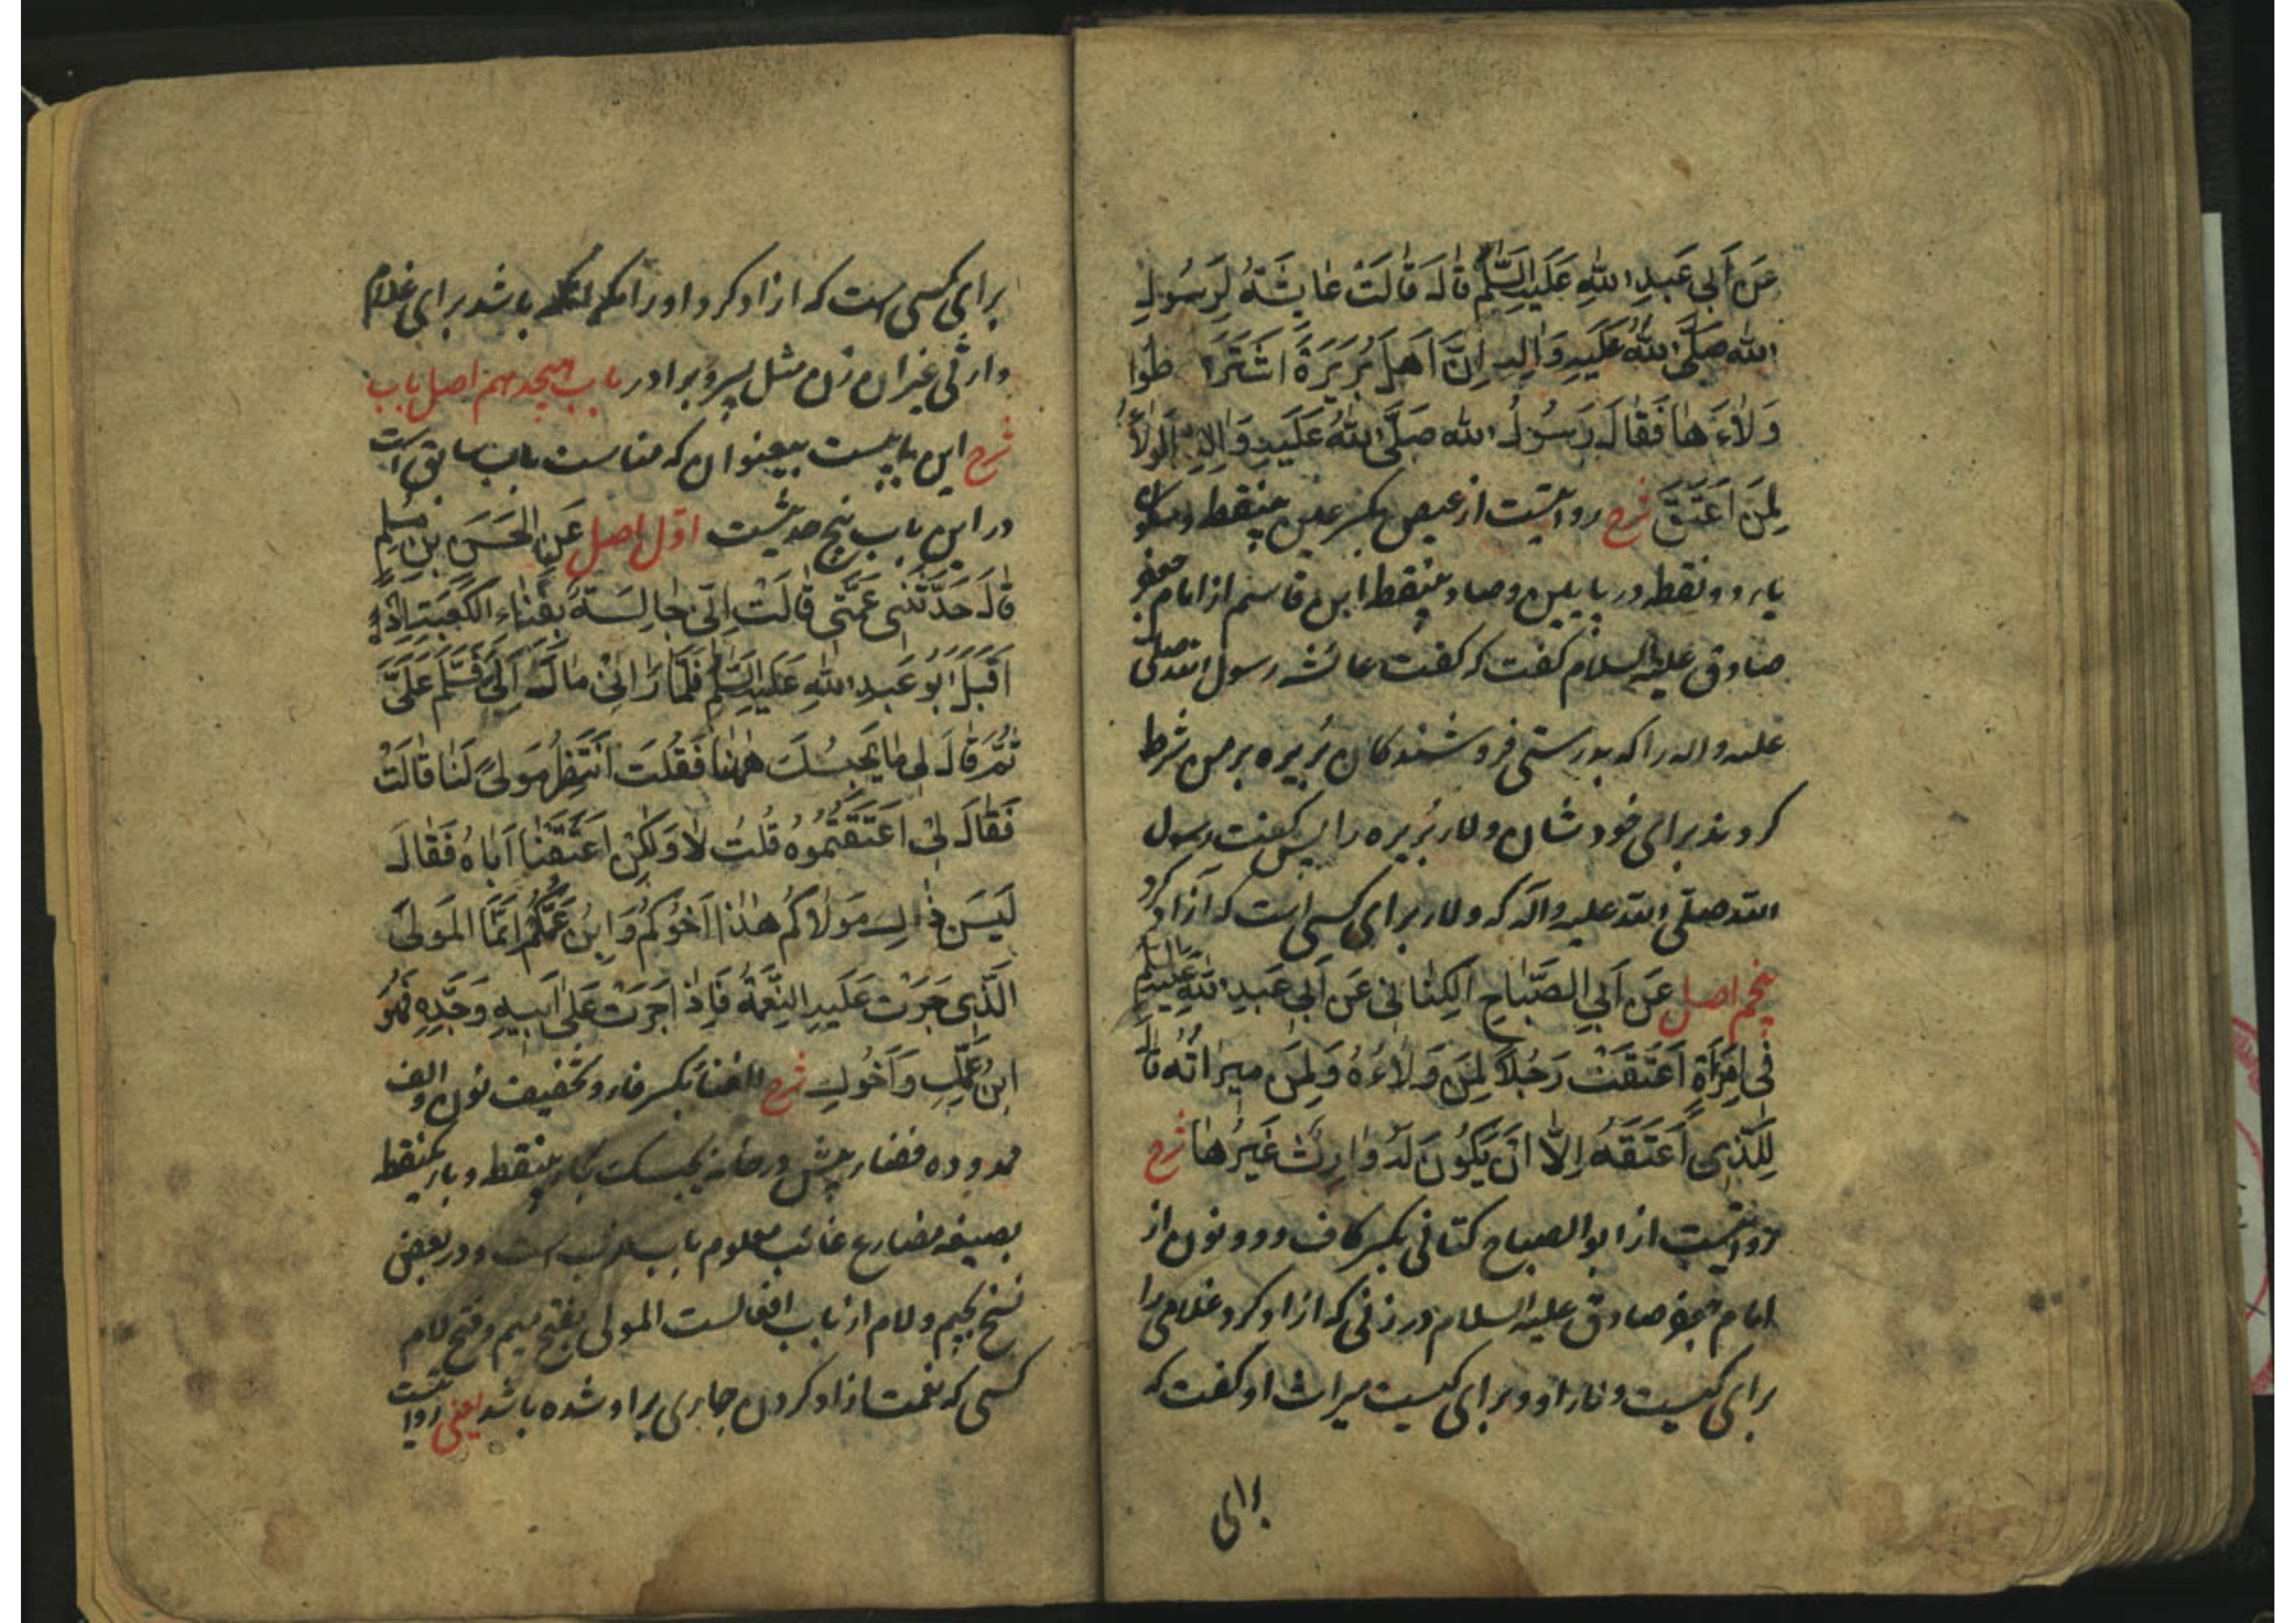 عَن اَبی عَبدِ اللهِ عَلَیهِ السَّلم قالَ قالَت عایشَةُ لِرَسُولِ
الله صَلَّی اللهُ عَلَیهِ وَالِه اِنَّ اَهلَ بُرَیرَةَ اشتَرَ طُوا
وَلاءَ ها فَقالَ رَسُولُ الله صَلَّی اللهُ عَلَیهِ وَالِهِ اَلوَلاءُ
لِمَن اَعتَقَ شرح روایتست از عیص بکسر عین بینقطه و سکون
یاء دو نقطه در پایین وصاد بینقطه ابن قاسم از امام جعفر
صادق علیه السلام کفت که کفت عائشه رسول الله صلی
علیه واله را که بدرستی فروشندکان بُریره بر من شرط
کردند برای خودشان ولاء بُریره را پس کفت رسول
الله صلّی الله علیه واله که ولاء برای کسی است که آزاد کرد
پنجم اصل عَن اَبیِ الصَّباحِ الکِنانی عَن اَبی عَبدِ اللهِ عَلَیهِ السَّلم
فی امرَاَةٍ اَعتَقَت رَجُلاً لِمَن وَلاءُهُ وَلِمَن میراثُه قالَ
لِلَّذی اَعتَقَهُ اِلّا اَن یَکُونَ لَهُ وارِثٌ غَیرُها شرح
روایتست از ابوالصباح کنانی بکسر کاف و دو نون از
امام جعفر صادق علیه السلام در زنی که ازاد کرد غلامی را
برای کیست ولاء او و برای کیست میراث او کفت که
برای
برای کسی است که ازاد کرد او را مکر انکه باشد برای غلام
وارثی غیر ان زن مثل پسر و برادر باب هیجدهم اصل باب
شرح این بابیست بیعنوان که مناسب باب سابق است
در این باب پنج حدیثست اوّل اصل عَنِ الحَسَنِ بنِ مُسلِم
قالَ حَدَّثَتنی عَمَّتی قالَت اِنّی جالِسَةٌ بِفَناءِ الکَعبَتِه اِذ
اَقبَلَ اَبُو عَبدِ اللهِ عَلَیهِ السَّلم فَلَمّا رَانی مالَ اِلَیَّ فَسَلَّم عَلَیَّ
ثُمَّ قالَ لی ما یَحبِسُکِ ههُنا فَقُلتُ اَنتَظِرُ مَولیً لَنا قالَت
فَقالَ لی اَعتَقتُمُوهُ قُلتُ لا وَلکِن اَعتَقنا اَباهُ فَقالَ
لَیسَ ذلِکَ مَولاکُم هذا اَخُوکُم وَابنُ عَمِّکُم اِنَّمَا المَولی
الَّذی جَرَت عَلَیهِ النِّعمَةُ فَاِذا جَرَت عَلی اَبیهِ وَجَدِّهِ فَهُوَ
ابنُ عَمِّکِ وَاَخُوکِ شرح الفناء بکسر فاء و تخفیف نون و الف
ممدوده فضاء پیش در خانه یحبسک بحاء بینقطه و باء یکنقطه
بصیغه مضارع غائب معلوم باب ضرب است و در بعضی
نسخ بجیم و لام از باب افعالست المولی بفتح میم و فتح لام
کسی که نعمت ازاد کردن جاری بر او شده باشد یعنی روایتست